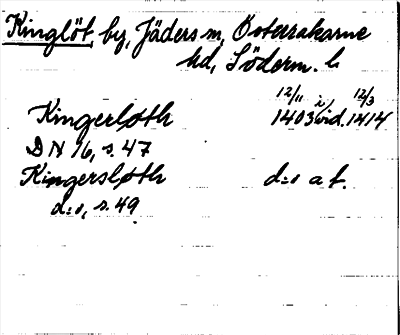 Kinglöt, by, Jäders sn, Österrekarne
hd, Söderm. l.
12/11 i 12/3
Kingerløth 1403 vid. 1414
DN 16, s. 47
Kingersløth d:o a f.
d:o, s. 49.